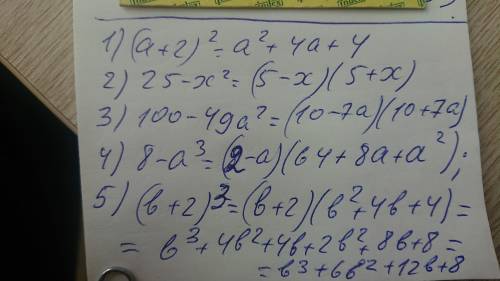 1) (a+2)² = a² + 4a + 4
2) 25-x² = (5-x)(5+x)
3) 100-49a² = (10-7a)(10+7a)
4) 8-a³ = (2-a)(64+8a+a²);
5) (b+2)³ = (b+2)(b²+4b+4) =
= b³+4b²+4b+2b²+8b+8 =
= b³+6b²+12b+8